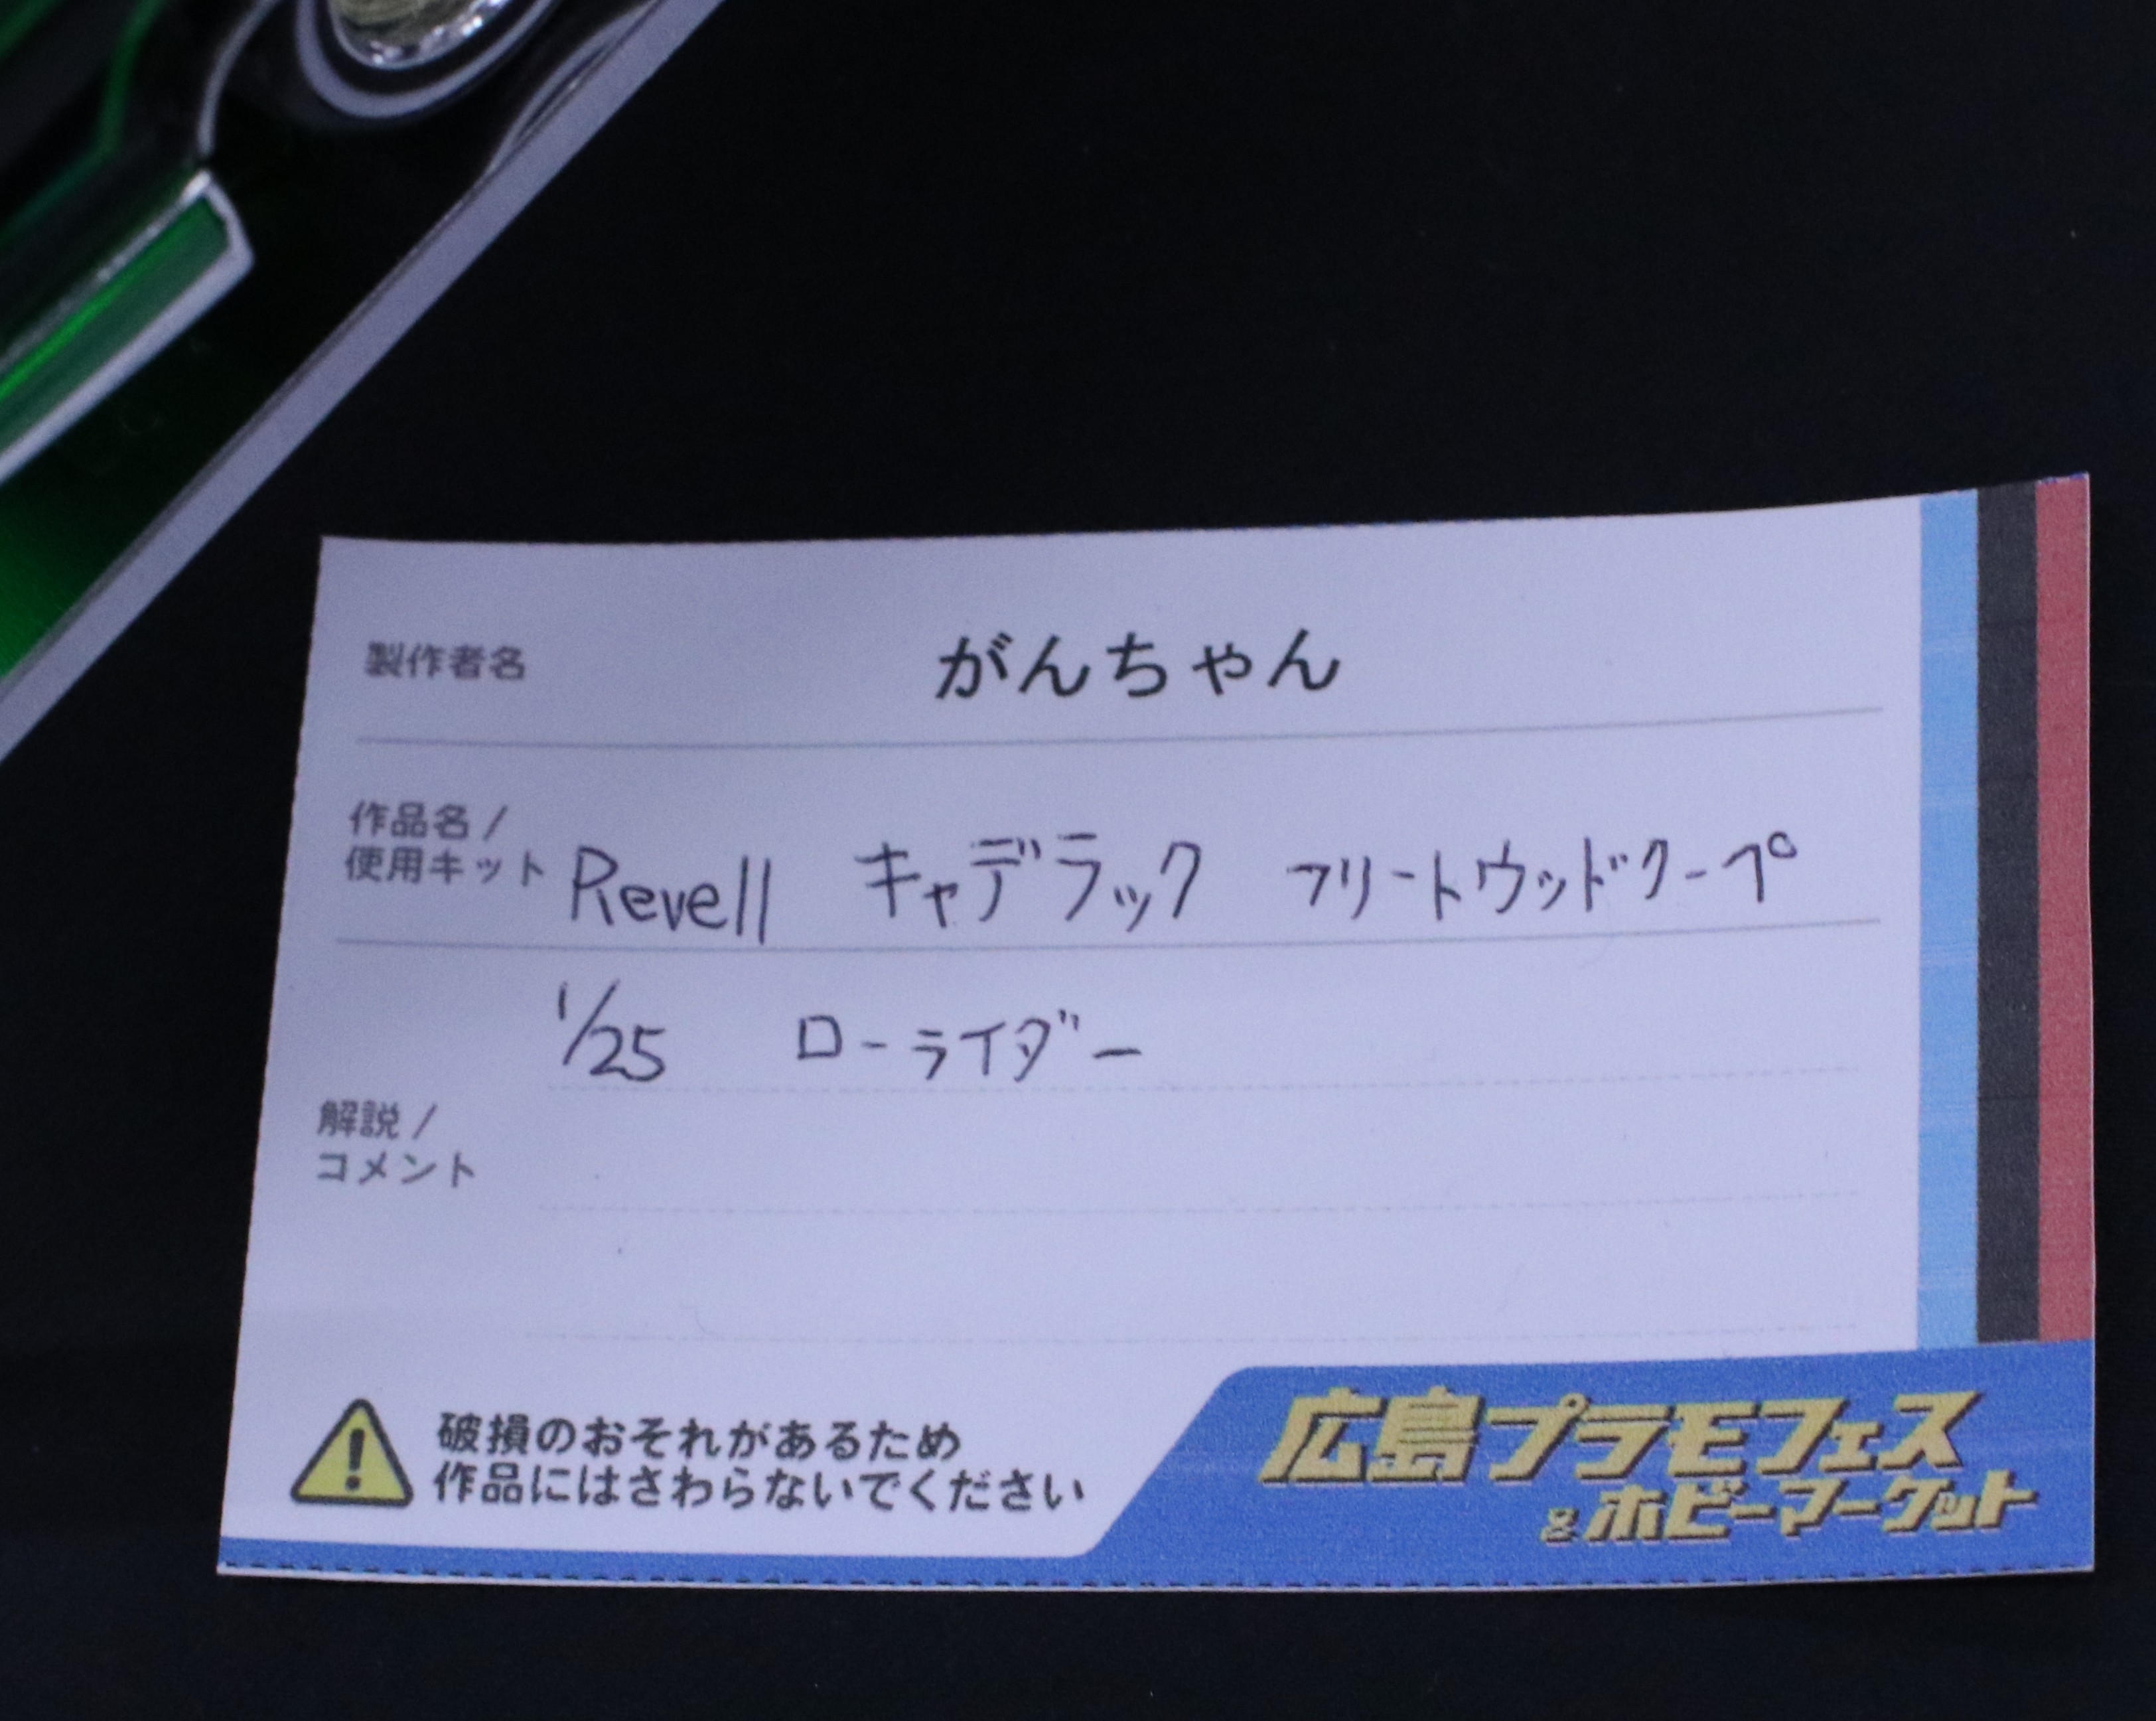 製作者名 がんちゃん
作品名 /
使用キット Revell キャデラック フリートウッドクーペ
1/25 ローライダー
解説 /
コメント
破損のおそれがあるため
作品にはさわらないでください
広島プラモフェス
&ホビーマーケット